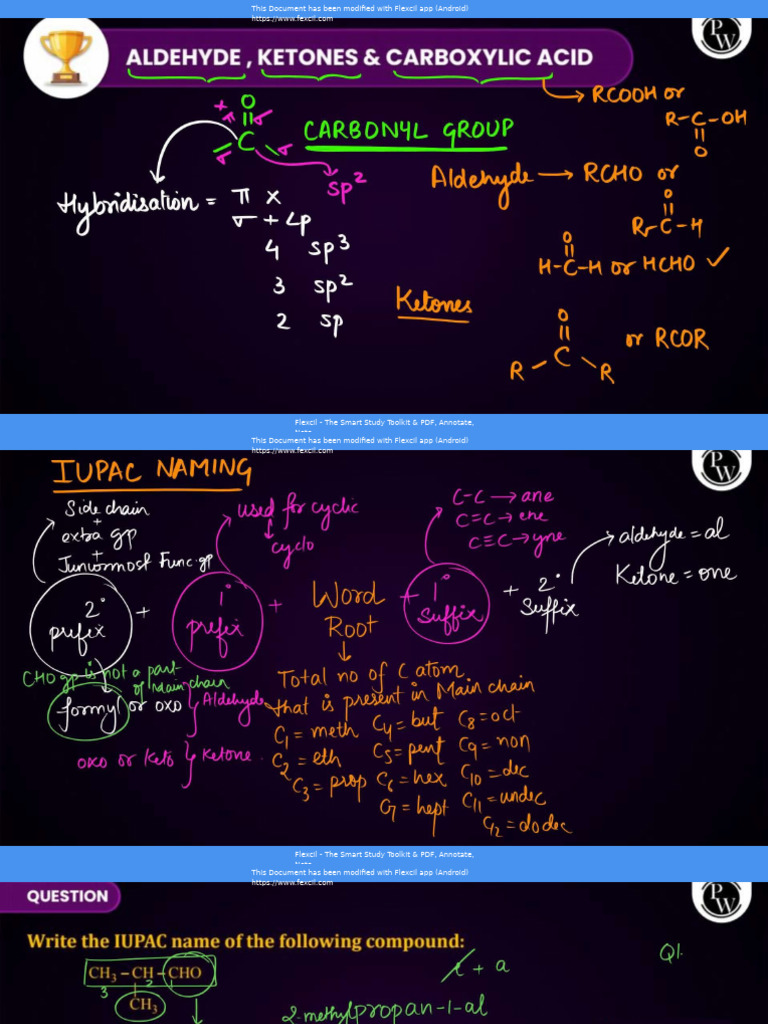 This Document has been modified with Flexcil app (Android)
https://www.flexcil.com
ALDEHYDE , KETONES & CARBOXYLIC ACID
PW
RCOOH or
R-C-OH
O
O
C
π σ
σ σ
CARBONYL GROUP
sp²
Aldehyde → RCHO or
O
R-C-H
Hybridisation = π x
σ + Lp
4 sp³
3 sp²
2 sp
O
H-C-H or HCHO ✓
Ketones
O
R-C-R or RCOR
Flexcil - The Smart Study Toolkit & PDF, Annotate,
This Document has been modified with Flexcil app (Android)
https://www.flexcil.com
PW
IUPAC NAMING
Side chain
+
extra gp
+
Juniormost Func. gp
used for cyclic
↓
cyclo
C-C → ane
C=C → ene
C≡C → yne
aldehyde = al
Ketone = one
2° prefix + 1° prefix + Word Root + 1° Suffix + 2° Suffix
CHO gp is not a part of Main chain
formyl or oxo } Aldehyde
oxo or Keto } Ketone
Total no of C atom
that is present in Main chain
C1 = meth C4 = but C8 = oct
C2 = eth C5 = pent C9 = non
C3 = prop C6 = hex C10 = dec
C7 = hept C11 = undec
C12 = dodec
Flexcil - The Smart Study Toolkit & PDF, Annotate,
This Document has been modified with Flexcil app (Android)
https://www.flexcil.com
QUESTION
PW
Write the IUPAC name of the following compound:
Q1.
CH₃ – CH – CHO
3 2
CH₃
+ a
2-methylpropan-1-al